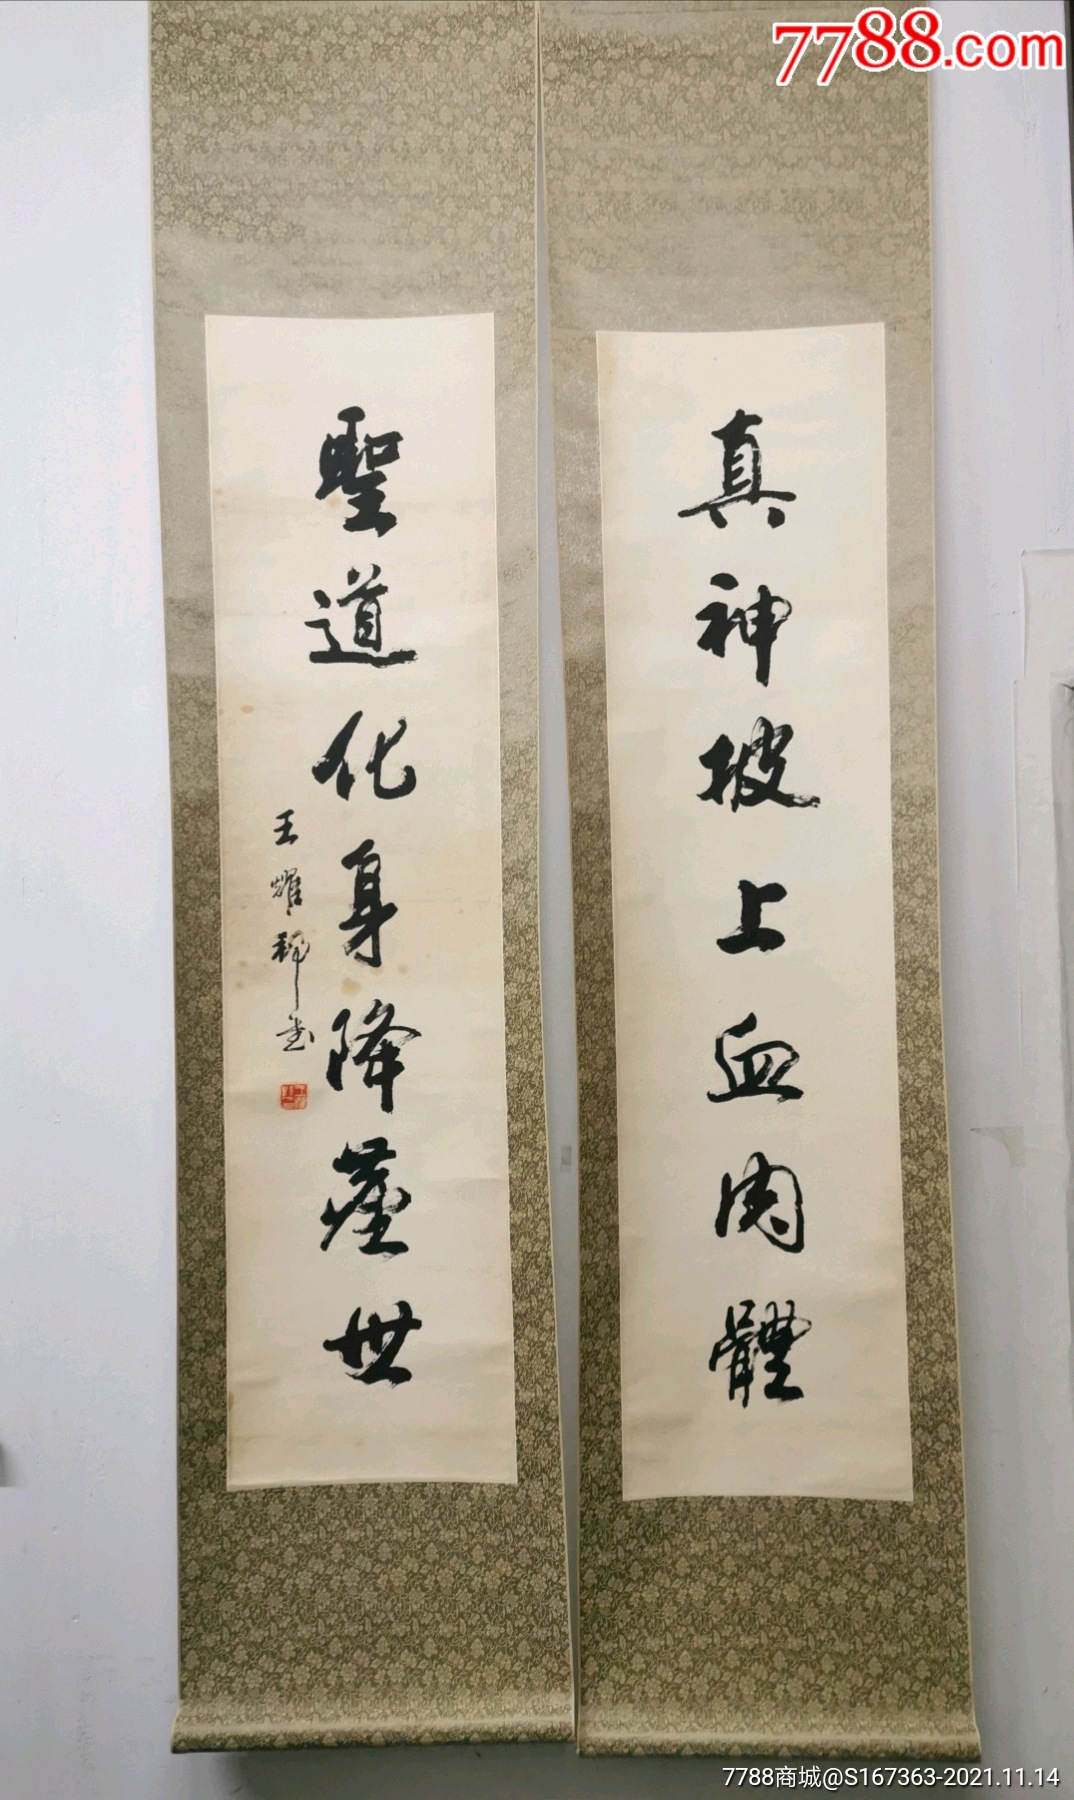 7788.com
真神披上血肉體
聖道化身降塵世
王耀
7788商城@S167363-2021.11.14